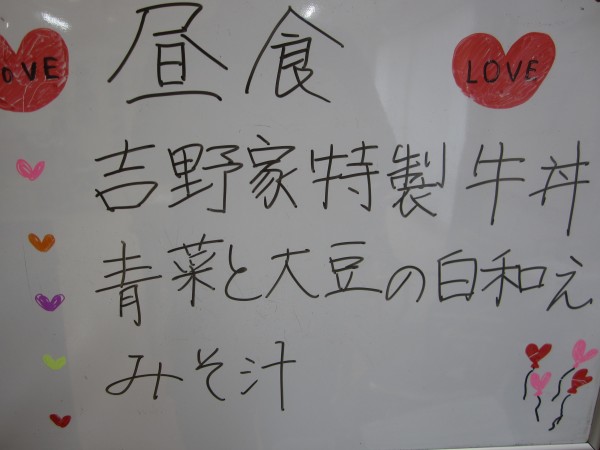 昼食
OVE
LOVE
吉野家特製牛丼
青菜と大豆の白和え
みそ汁